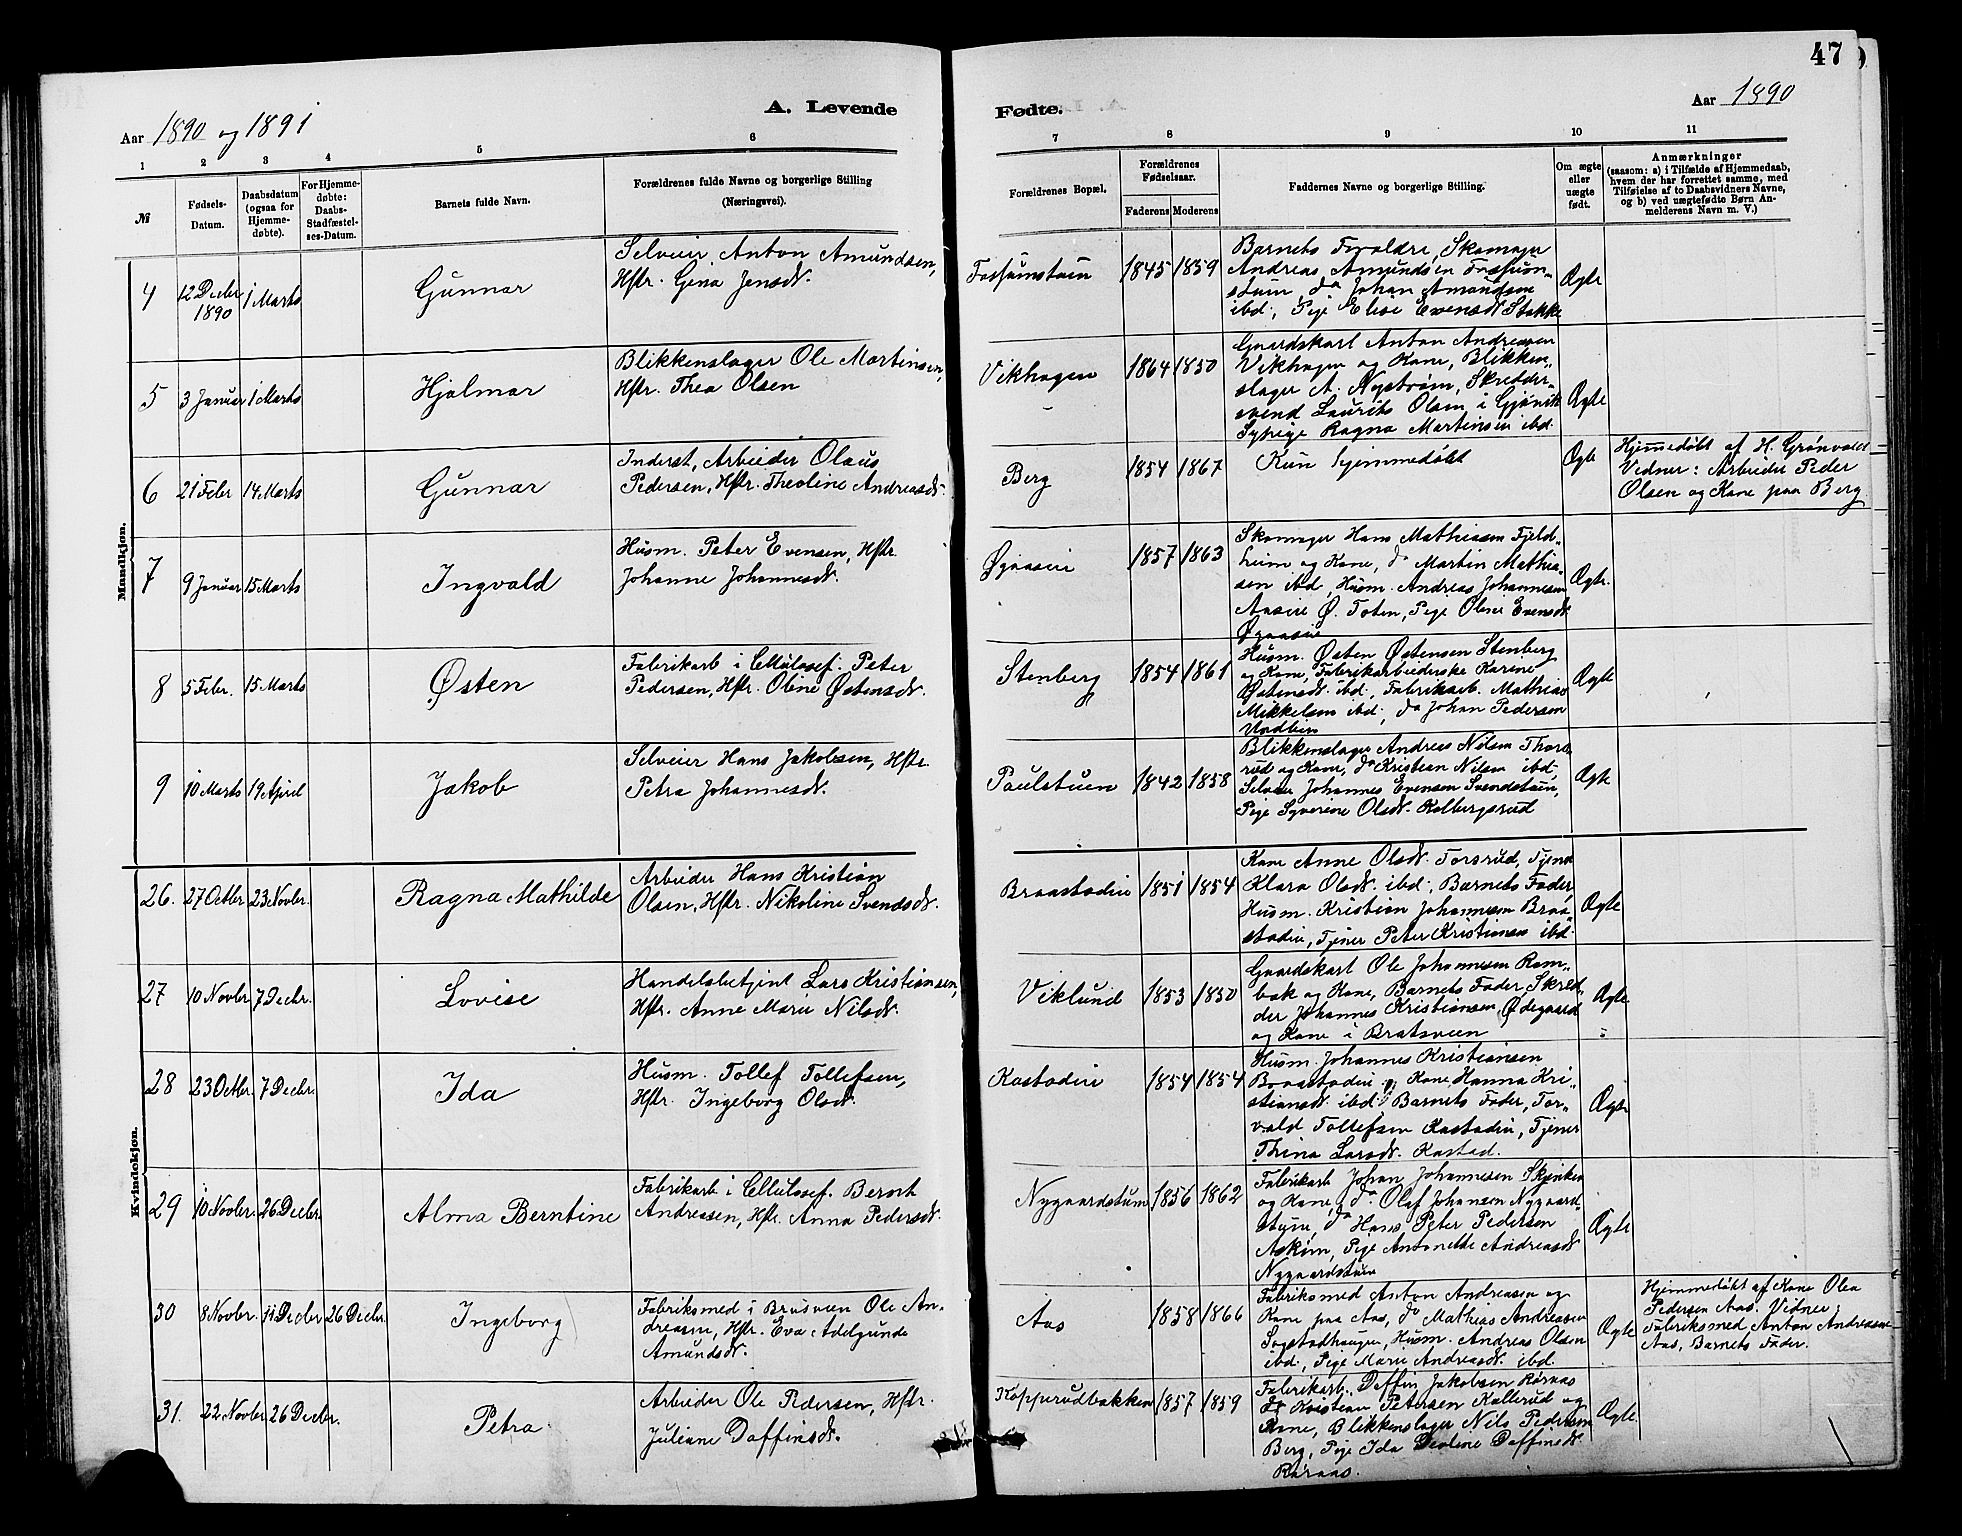 47
Aar 1890 og 1891
A. Levende
Fødte.
Aar 1890
1 2 3 4 5 6 7 8 9 10 11
№
Fødsels-
Datum.
Daabsdatum
(ogsaa for
Hjemme-
døbte).
For Hjemme-
døbte:
Daabs-
Stadfæstel-
ses-Datum.
Barnets fulde Navn.
Forældrenes fulde Navne og borgerlige Stilling
(Næringsvei).
Forældrenes Bopæl.
Forældrenes
Fødselsaar.
Faderens Moderens
Faddernes Navne og borgerlige Stilling.
Om ægte
eller
uægte
født.
Anmærkninger
(saasom: a) i Tilfælde af Hjemmedaab,
hvem der har forrettet samme, med
Tilføielse af to Daabsvidners Navne,
og b) ved uægtefødte Børn An-
melderens Navn m. V.)
Mandkjøn.
4
12 Decbr
1890
1 Marts
Gunnar
Selveier Anton Amundsen,
Hstr. Gina Jensdt.
Fossumstuen
1845 1859
Barnets Forældre, Skomager
Andreas Amundsen Fossum-
stuen, do Johan Amundsen
ibd., Pige Elise Evensdt Stokke
Ægte
5
3 Januar
1 Marts
Hjalmar
Blikkenslager Ole Martinsen,
Hstr. Thea Olsen
Vikhagen
1864 1850
Gaardskarl Anton Andreasen
Vikhagen og Kone, Blikken-
slager A. Nystrøm, Skrædder-
svend Laurits Olsen i Gjøvik
Sypige Ragna Martinsen ibd.
Ægte
6
21 Febr
14 Marts
Gunnar
Inderst, Arbeider Olaus
Pedersen, Hstr. Theoline Andreasdt.
Berg
1854 1867
Kun hjemmedøbt
Ægte
Hjemmedøbt af H. Grønvold
Vidner: Arbeider Peder
Olsen og Kone paa Berg
7
9 Januar
15 Marts
Ingvald
Husm. Peter Evensen, Hstr
Johanne Johannesdt.
Øgaasen
1857 1863
Skomager Hans Mathiasen Fjeld-
heim og Kone, do Martin Mathia-
sen ibd, Husm. Andreas Johannesen
Aaseie Ø. Toten, Pige Oline Evensdt
Øgaasen
Ægte.
8
5 Febr.
15 Marts
Østen
Fabrikarb i Cellulosef. Peter
Pedersen, Hstr. Oline Østensdt.
Stenberg
1854 1861
Husm. Østen Østensen Stenberg
og Kone, Fabrikarbeiderske Karine
Østensdt ibd., Fabrikarb. Mathias
Mikkelsen ibd., do Johan Pedersen
Ægte
9
10 Marts
19 April
Jakob
Selveier Hans Jakobsen, Hstr
Petra Johannesdt.
Paulstuen
1842 1858
Blikkenslager Andreas Nilsen Thors-
rud og Kone, do Kristian Nilsen ibd.
Selveier Johannes Evensen Svendstuen,
Pige Syverine Olsdt. Kolbergsrud
Ægte
Kvindekjøn.
26.
27 Octbr
23 Novbr.
Ragna Mathilde
Arbeider Hans Kristian
Olsen, Hstr. Nikoline Svendsdt.
Braastadeie
1851 1854
Kone Anne Olsdt. Torsrud, Tjener
Klara Olsdt. ibd., Barnets Fader,
Husm. Kristian Johannesen Braa-
stadeie, Tjener Peter Kristiansen ibd.
Ægte
27
10 Novbr
7 Decbr.
Lovise
Handelsbetjent Lars Kristiansen,
Hstr. Anne Marie Nilsdt.
Viklund
1853 1850
Gaardskarl Ole Johannesen Ram-
bak og Kone, Barnets Fader, Skræd-
der Johannes Kristiansen, Ødegaard
og Kone i Bratsveen
Ægte
28
23 Octbr.
7 Decbr.
Ida
Husm. Tollef Tollefsen,
Hstr. Ingeborg Olsdt.
Kastadeie
1854 1854
Husm. Johannes Kristiansen
Braastadeie og Kone, Hanna Kri-
stiansdt. ibd, Barnets Fader, Tor-
vald Tollefsen Kastadeie, Tjener
Thina Larsdt. Kastad.
Ægte
29
10 Novbr.
26 Decbr.
Alma Berntine
Fabrikarb i Cellulosef. Bernt
Andreasen, Hstr. Anna Pedersdt.
Nygaardstuen
1856 1862
Fabrikarb Johan Johannesen Skjenken
og Kone, do. Olaf Johansen Nygaard-
stuen, do Hans Peter Pedersen
Askim, Pige Antonette Andreasdt
Nygaardstuen
Ægte
30
8 Novbr.
11 Decbr
26 Decbr.
Ingeborg
Fabriksmed i Brusveen Ole An-
dreasen, Hstr. Eva Adelgunde
Amundsdt.
Aas
1858 1866
Fabriksmed Anton Andreasen og
Kone paa Aas, do Mathias Andreasen
Sogstadhaugen, Husm. Andreas Olsen
ibd., Pige Marie Andreasdt. ibd.
Ægte
Hjemmedøbt af Kone Olea
Pedersen Aas. Vidner;
Fabriksmed Anton Andreasen
Aas, Barnets Fader.
31.
22 Novbr
26 Decbr.
Petra
Arbeider Ole Pedersen, Hstr.
Juliane Daffinsdt.
Kopperudbakken
1857 1859
Fabrikarb. Deffin Jakobsen Røraas
do Kristian Petersen Kallerud og
Kone, Blikkenslager Nils Pedersen
Berg, Pige Ida Deoline Daffinsdt
Røraas.
Ægte